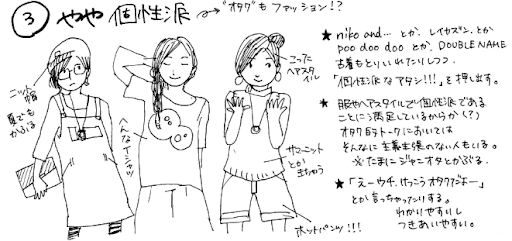 ③ やや個性派
→"オタク"もファッション!?
ニット帽
夏でも
かぶる
へんなTシャツ
こった
ヘアスタ
イル
サマーニット
とか
きちゃう
ホットパンツ!!!
★ niko and... とか、レイカズン、とか
poo doo doo とか、DOUBLE NAME
古着もとりいれたりしつつ、
「個性派なアタシ!!!」を押し出す。
★ 服やヘアスタイルで個性派である
ことに満足しているからか(?)
オタク的トークにおいては
そんなに主義主張のない人もいる。
※たまにジャニオタとかぶる.
★「えーウチ、けっこうオタクだよー」
とか言っちゃったりする。
わかりやすいし
つきあいやすい。